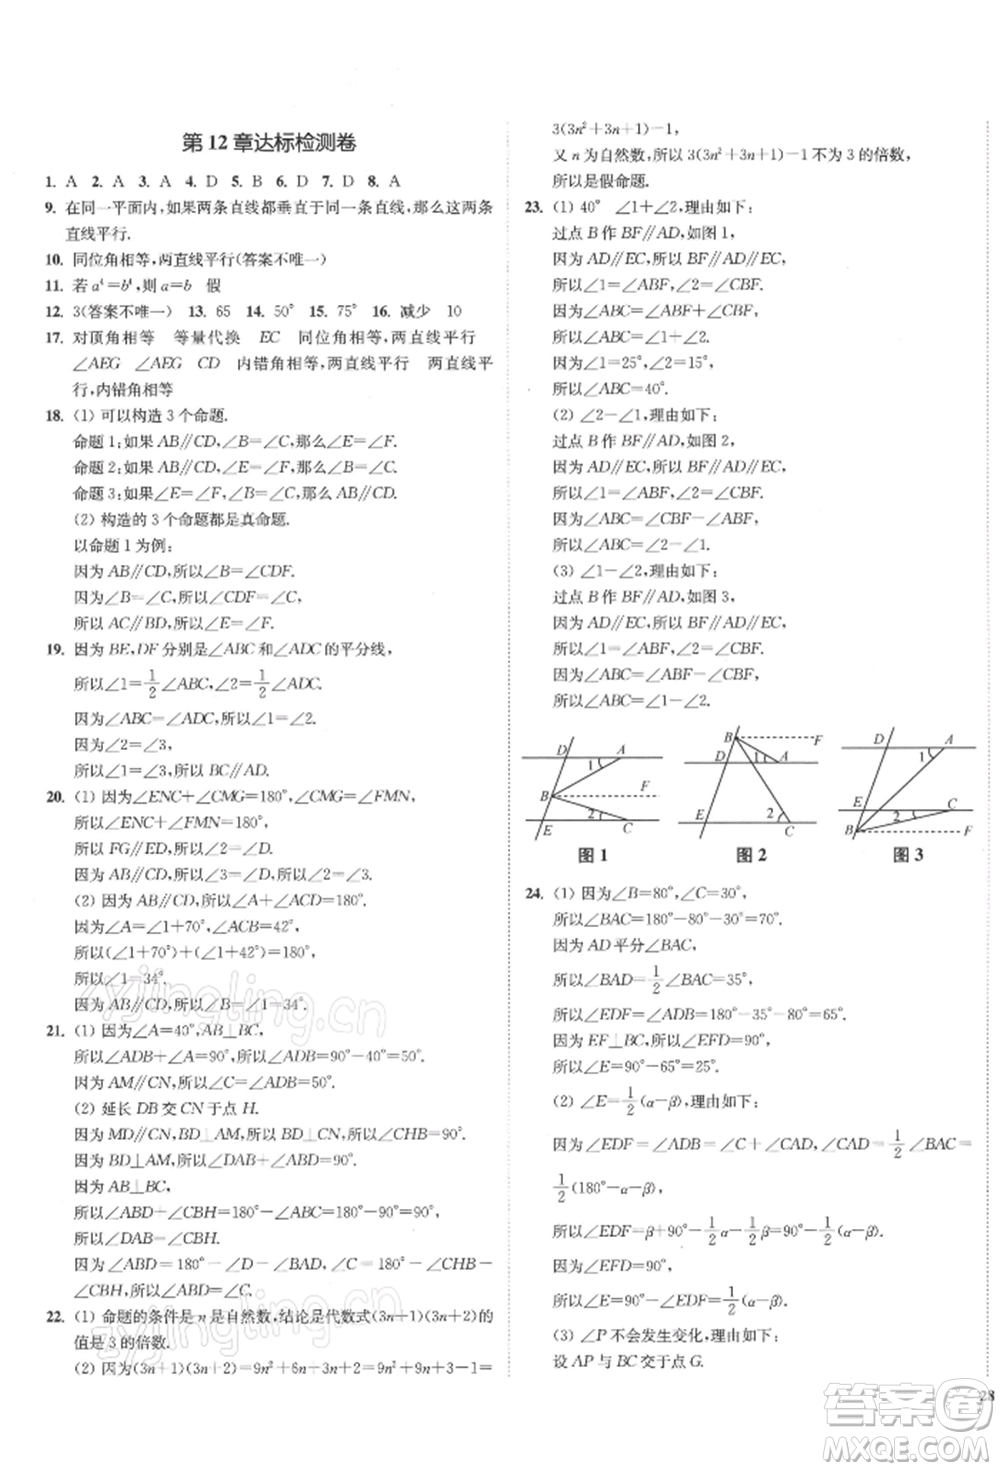 第 12 章达标检测卷
1. A 2. A 3. A 4. D 5. B 6. D 7. D 8. A
9. 在同一平面内,如果两条直线都垂直于同一条直线,那么这两条
直线平行.
10. 同位角相等,两直线平行(答案不唯一)
11. 若 a⁴=b⁴,则 a=b 假
12. 3(答案不唯一) 13. 65 14. 50° 15. 75° 16. 减少 10
17. 对顶角相等 等量代换 EC 同位角相等,两直线平行
∠AEG ∠AEG CD 内错角相等,两直线平行 两直线平行
,内错角相等
18. (1) 可以构造 3 个命题.
命题 1:如果 AB∥CD,∠B=∠C,那么∠E=∠F.
命题 2:如果 AB∥CD,∠E=∠F,那么∠B=∠C.
命题 3:如果∠E=∠F,∠B=∠C,那么 AB∥CD.
(2) 构造的 3 个命题都是真命题.
以命题 1 为例:
因为 AB∥CD,所以∠B=∠CDF.
因为∠B=∠C,所以∠C=∠CDF.
所以 AC∥BD,所以∠E=∠F.
19. 因为 BE,DF 分别是∠ABC 和∠ADC 的平分线,
所以∠1=1/2∠ABC,∠2=1/2∠ADC.
因为∠ABC=∠ADC,所以∠1=∠2.
因为∠2=∠3,
所以∠1=∠3,所以 BC∥AD.
20. (1) 因为∠ENC+∠CMG=180°,∠CMG=∠FMN,
所以∠ENC+∠FMN=180°.
所以 FG∥ED,所以∠2=∠D.
因为∠1=∠2,所以∠1=∠D,
所以 AB∥CD.
(2) 因为 AB∥CD,所以∠A+∠ACD=180°.
因为∠A=∠1+70°,∠ACB=42°,
所以(∠1+70°)+(∠1+42°)=180°,
所以∠1=34°.
因为 AB∥CD,所以∠B=∠1=34°.
21. (1) 因为∠A=40°,AB⊥BC,
所以∠ADB+∠A=90°,所以∠ADB=90°-40°=50°.
因为 AM∥CN,所以∠C=∠ADB=50°.
(2) 延长 DB 交 CN 于点 H.
因为 MD∥CN,BD⊥AM,所以 BD⊥CN,所以∠CHB=90°.
因为 BD⊥AM,所以∠DAB+∠ABD=90°.
因为 AB⊥BC,
所以∠ABD+∠CBH=180°-∠ABC=90°,
所以∠DAB=∠CBH.
因为∠ABD=180°-∠D-∠BAD,∠C=180°-∠CHB-
∠CBH,所以∠ABD=∠C.
22. (1) 命题的条件是 n 是自然数,结论是代数式(3n+1)(3n+2)的
值是 3 的倍数.
(2) 因为(3n+1)(3n+2)=9n²+6n+3n+3-1=
3(3n²+3n+1)-1,
又 n 为自然数,所以 3(3n²+3n+1)-1 不为 3 的倍数,
所以是假命题.
23. (1) 40° ∠1+∠2,理由如下:
过点 B 作 BF∥AD,如图 1,
因为 AD∥EC,所以 BF∥AD∥EC,
所以∠1=∠ABF,∠2=∠CBF.
因为∠ABC=∠ABF+∠CBF,
所以∠ABC=∠1+∠2.
因为∠1=25°,∠2=15°,
所以∠ABC=40°.
(2) ∠2-∠1,理由如下:
过点 B 作 BF∥AD,如图 2,
因为 AD∥EC,所以 BF∥AD∥EC,
所以∠1=∠ABF,∠2=∠CBF.
因为∠ABC=∠CBF-∠ABF,
所以∠ABC=∠2-∠1.
(3) ∠1-∠2,理由如下:
过点 B 作 BF∥AD,如图 3,
因为 AD∥EC,所以 BF∥AD∥EC,
所以∠1=∠ABF,∠2=∠CBF.
因为∠ABC=∠ABF-∠CBF,
所以∠ABC=∠1-∠2.
D A 1 B F 2 E C
B F D 1 A E 2 C
D 1 A E 2 C B F
图 1 图 2 图 3
24. (1) 因为∠B=80°,∠C=30°,
所以∠BAC=180°-80°-30°=70°.
因为 AD 平分∠BAC,
所以∠BAD=1/2∠BAC=35°,
所以∠EDF=∠CAD+∠C=65°.
因为 EF⊥BC,所以∠EFD=90°,
所以∠E=90°-65°=25°.
(2) ∠E=1/2(α-β),理由如下:
因为∠EDF=∠ADB=∠C+∠CAD,∠CAD=1/2∠BAC=
1/2(180°-α-β),
所以∠EDF=β+90°-1/2α-1/2β=90°-1/2(α-β).
因为∠EFD=90°,
所以∠E=90°-∠EDF=1/2(α-β).
(3) ∠P 不会发生变化,理由如下:
设 AP 与 BC 交于点 G.
28
zyjingling.cn
zyjingling.cn
答案圈
MXQE.COM